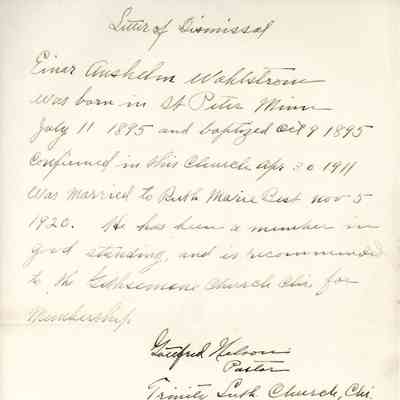 Letter of Dismissal
Einar Anshelm Wahlstrom
was born in St Peter Minn
July 11 1895 and baptized Oct 9 1895
Confirmed in this Church Apr 30 1911
Was married to Ruth Marie Best Nov 5
1920. He has been a member in
good standing, and is recommended
to the Gethsemane Church Chi. for
Membership
Gottfred Nelson
Pastor
Trinity Luth Church, Chi.